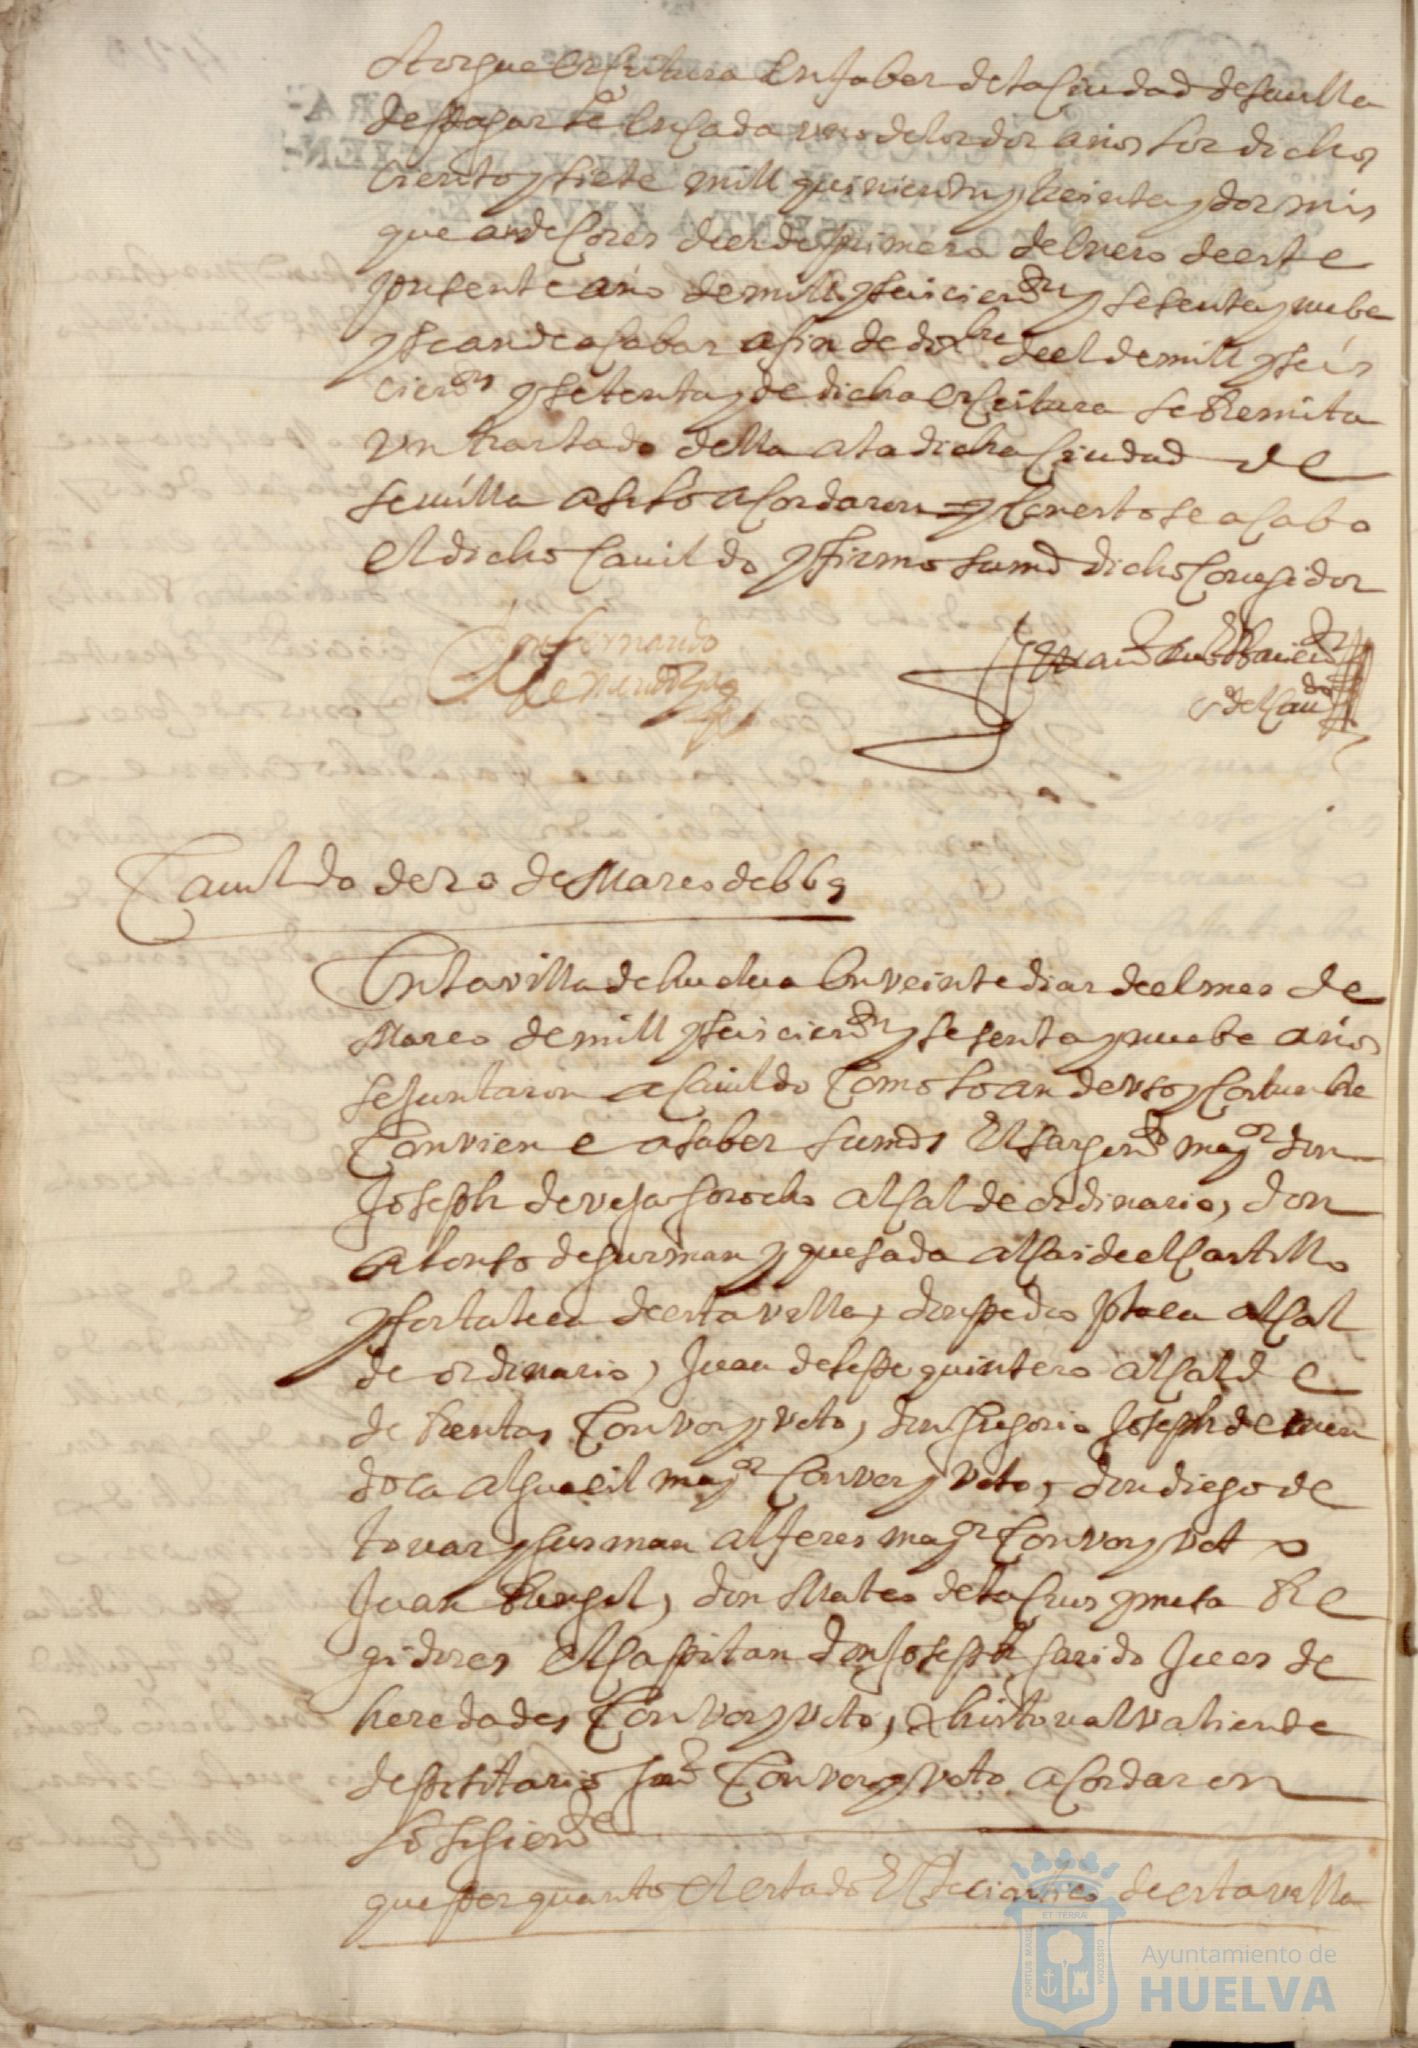 otorgue escritura en fabor de la Ciudad de seuilla
de pagarle en cada uno de los dos años los dichos
Ciento y siete mill quinientos y treinta y dos mrs
que an de Correr desde primero de henero de este
presente año de mill y seiscientos y sesenta y nuebe
y se an de acabar a fin de dizbre de el de mill y seis
cientos y setenta y de dicha escritura se Remita
vn traslado della a la dicha Ciudad de
seuilla asi lo acordaron y Con esto se acabo
el dicho Cauildo y firmo su md dicho Corregidor
Don fernando
de
Juan
de Caudo
Cauildo de 20 de Março de 669
En la villa de huelua En veinte dias de el mes de
Março de mill y seiscientos y sesenta y nuebe años
se Juntaron a Cauildo Como lo an de vso y Costumbre
Conviene a saber sus mds El sargento mayor don
Joseph de vega Corocho alcalde ordinario, don
alonso de gusman y quesada alcaide el Castillo
y fortaleça de esta villa, don pedro plaça alcal
de ordinario, Juan de lepe quintero alcalde
de Rentas Con voz y voto, don gregorio Joseph de men
doça alguacil mayor Con voz y voto, don diego de
touar y gusman alferes mayor Con voz y voto
Juan Rangel, don Mateo de la Crus y mesa Re
gidores el Capitan don Joseph garrido Jues de
heredades Con voz y voto, Christoual valiente
depositario Con voz y voto acordaron
lo siguiente
que por quanto el estado Ecleciastico de esta villa
PORTUS MARIS
ET TERRA
CUSTODIA
Ayuntamiento de
HUELVA